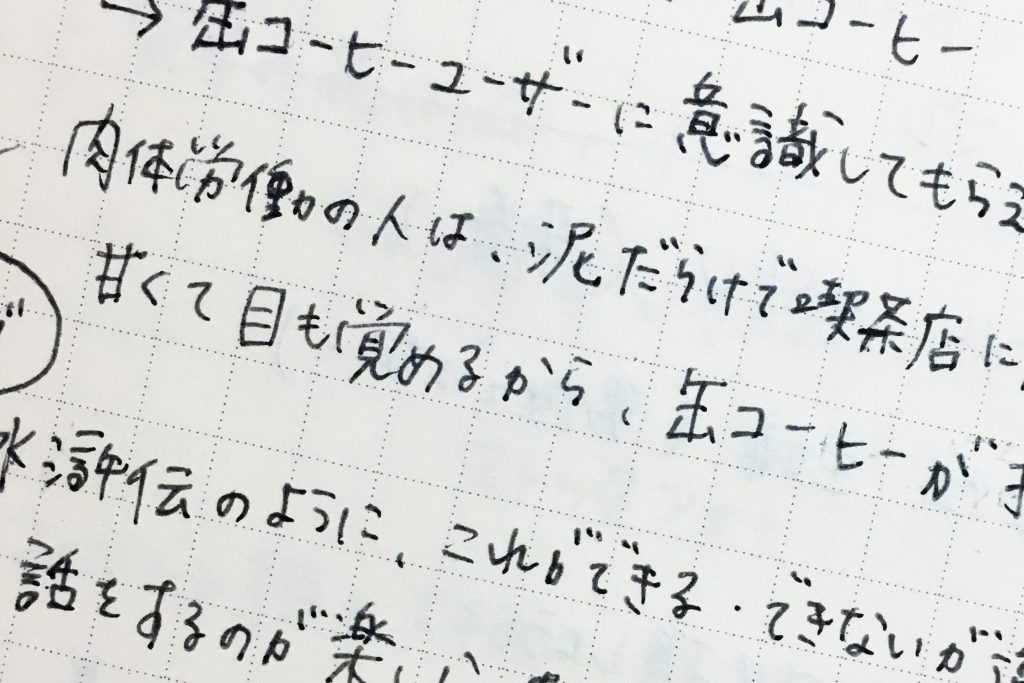 缶コーヒー
→缶コーヒーユーザーに意識してもらえ
肉体労働の人は、泥だらけで喫茶店に
甘くて目も覚めるから、缶コーヒーが
水滸伝のように、これができる・できないが
話をするのが楽しい